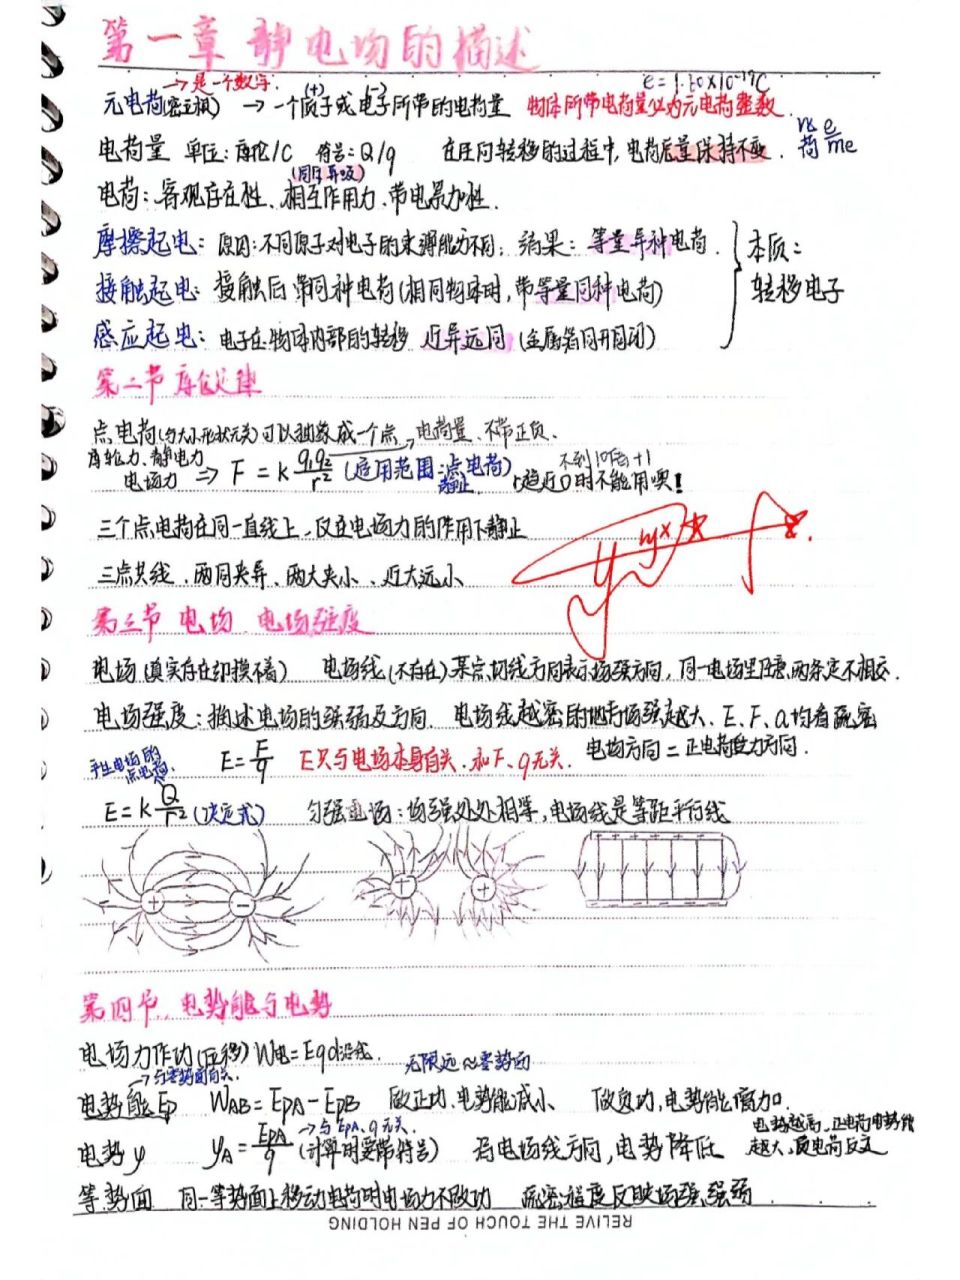 第一章 静电场的描述
→是一个数字.
e=1.60×10⁻¹⁹C
元电荷(密立根) → 一个质子(+)或电子(-)所带的电荷量 物体所带电荷量必为元电荷整数.
电荷量 单位:库伦/C 符号:Q/q 在任何转移的过程中,电荷总量保持不变. 比荷 e/me
(同斥异吸)
电荷:客观存在性、相互作用力、带电累加性.
摩擦起电:原因:不同原子对电子的束缚能力不同; 结果:等量异种电荷.
接触起电:接触后带同种电荷(相同物体时,带等量同种电荷)
感应起电:电子在物体内部的转移 近异远同(金属箔同开同闭)
本质:
转移电子
第二节 库仑定律
点电荷(与大小形状无关)可以抽象成一个点→电荷量、不带正负.
库轮力、静电力
电场力 ⇒ F=k q₁q₂/r² (适用范围:点电荷) 静止 r趋近0时不能用噢!
三个点电荷在同一直线上,仅在电场力的作用下静止
三点共线、两同夹异、两大夹小、近大远小
第三节 电场 电场强度
电场(真实存在却摸不着) 电场线(不存在)某点切线方向表示场强方向,同一电场里任意两条定不相交.
电场强度:描述电场的强弱及方向. 电场线越密的地方场强越大、E、F、a均看疏密
E=F/q E只与电场本身有关.和F、q无关. 电场方向=正电荷受力方向.
产生电场的
点电荷.
E=k Q/r² (决定式) 匀强电场:场强处处相等,电场线是等距平行线
第四节、电势能与电势
电场力作功(位移) W电=Eqd沿线.
→与零势面有关. 无限远≈零势面
电势能Ep W_AB=E_pA-E_pB 做正功、电势能减小 做负功,电势能增加.
电势φ φ_A=E_pA/q →与E_pA、q无关. (计算时要带符号) 沿电场线方向,电势降低 电势越高,正电荷电势能
越大、负电荷反之
等势面 同一等势面上移动电荷时电场力不做功 疏密程度反映场强强弱
RELIVE THE TOUCH OF PEN HOLDING